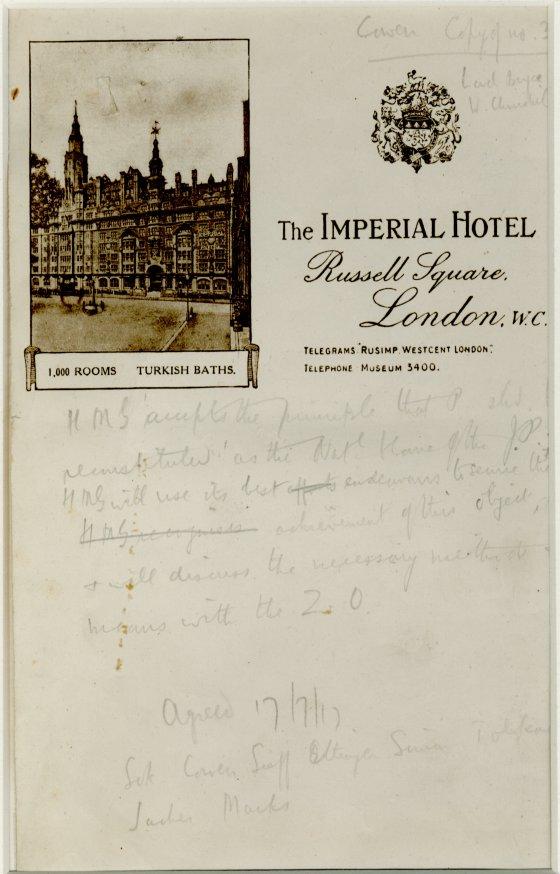 Cowen Copy of no. 3
Lord
W.
The IMPERIAL HOTEL
Russell Square.
London. W.C.
TELEGRAMS "RUSIMP, WESTCENT LONDON".
TELEPHONE MUSEUM 3400.
1,000 ROOMS TURKISH BATHS.
HMG accepts the principle that P shd
reconstituted as the Natl Home of the J.P.
HMG will use its best efforts endeavours to secure the
HMG recognises achievement of this object,
& will discuss the necessary methods &
means with the Z.O.
Agreed 17/7/17
Sok Cowen Sieff Ettinger Simon Tolkow
Sacher Marks